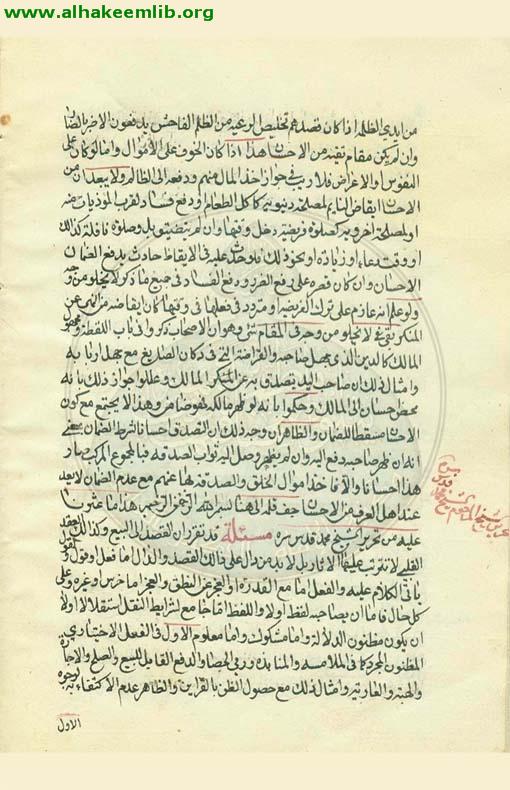 www.alhakeemlib.org
من ايدي الظلمة اذا كان قصدهم تخليص الرعية من الظلم الفاحش يدفعون الاخر بالضمان
وان لم يكن مقام تقية من الاحسان هذا اذا كان الخوف على الأموال وامالوكان على
النفوس او الاعراض فلا ريب في جواز اخذ المال منهم ودفعه الى الظالم ولا يبعد ان من
الاحسان ايقاض النايم لمصلحة دنيوية كاكل الطعام او دفع فساد لقرب الموذيات منه
او لمصلحة اخروية كصلوة فريضة دخل وقتها وان لم يتضيق بل وصلوة نافلة كذلك
او وقت دعاء او زيارة او نحو ذلك فلو حدث عليه في الايقاظ حادث يدفع الضمان
الاحسان وان كان قصره على رفع الضرر ودفع الفساد في جميع ما ذكر لا يخلو من وجه
ولو علم انه عازم على ترك الفريضة او متردد في فعلها في وقتها كان ايقاضه من النهي عن
المنكر بقي في المقام شئ وهو ان الاصحاب ذكروا في باب اللقطة ومجهول
المالك كالدين الذي جهل صاحبه والقراضة التي في دكان الصايغ مع جهل اربابه
وامثال ذلك ان صاحب اليد يتصدق به عن المالك وعللوا جواز ذلك بانه
محض احسان الى المالك وحكموا بانه لو ظهر مالكه يفوضا وهذا لا يجتمع مع كون
الاحسان مسقطا للضمان والظاهر ان وجه ذلك ان التصدق احسانا لشرط الضمان بمعنى
انه ان ظهر صاحبه دفع اليه وان لم يظهر وصل اليه ثواب الصدقة فبالمجموع المركب صار
هذا احسانا والا فاخذ اموال الخلق والصدقة بها عنهم مع عدم الضمان لا يعد
عند اهل العرف من الاحسان جف قلمه الى هنا
عليه من تحرير الشيخ محمد قدس سره مسئلة قد تقرر ان القصد الى البيع وكذا كل العقد
القلبي لا تترتب عليها الاثار بل لابد من دال على ذلك القصد والدال اما فعل او قول
ياتي الكلام عليه والفعل اما مع القدرة او العجز عن النطق والعجز اما خرس او غيره وعلى
كل حال فاما ان يصاحبه لفظ اولا واللفظ اما جامع لشرايط النقل استقلالا اولا
ان يكون مظنون الدلالة واما مشكوك واما معلوم الاول في الفعل الاختياري
المظنون المجرد كما في الملامسة والمنابذة ورمي الحصا والدفع القابل للبيع والصلح والاجارة
والهبة والعارية وامثال ذلك مع حصول الظن بالقراين والظاهر عدم الاكتفاء به لوجوه
الاول